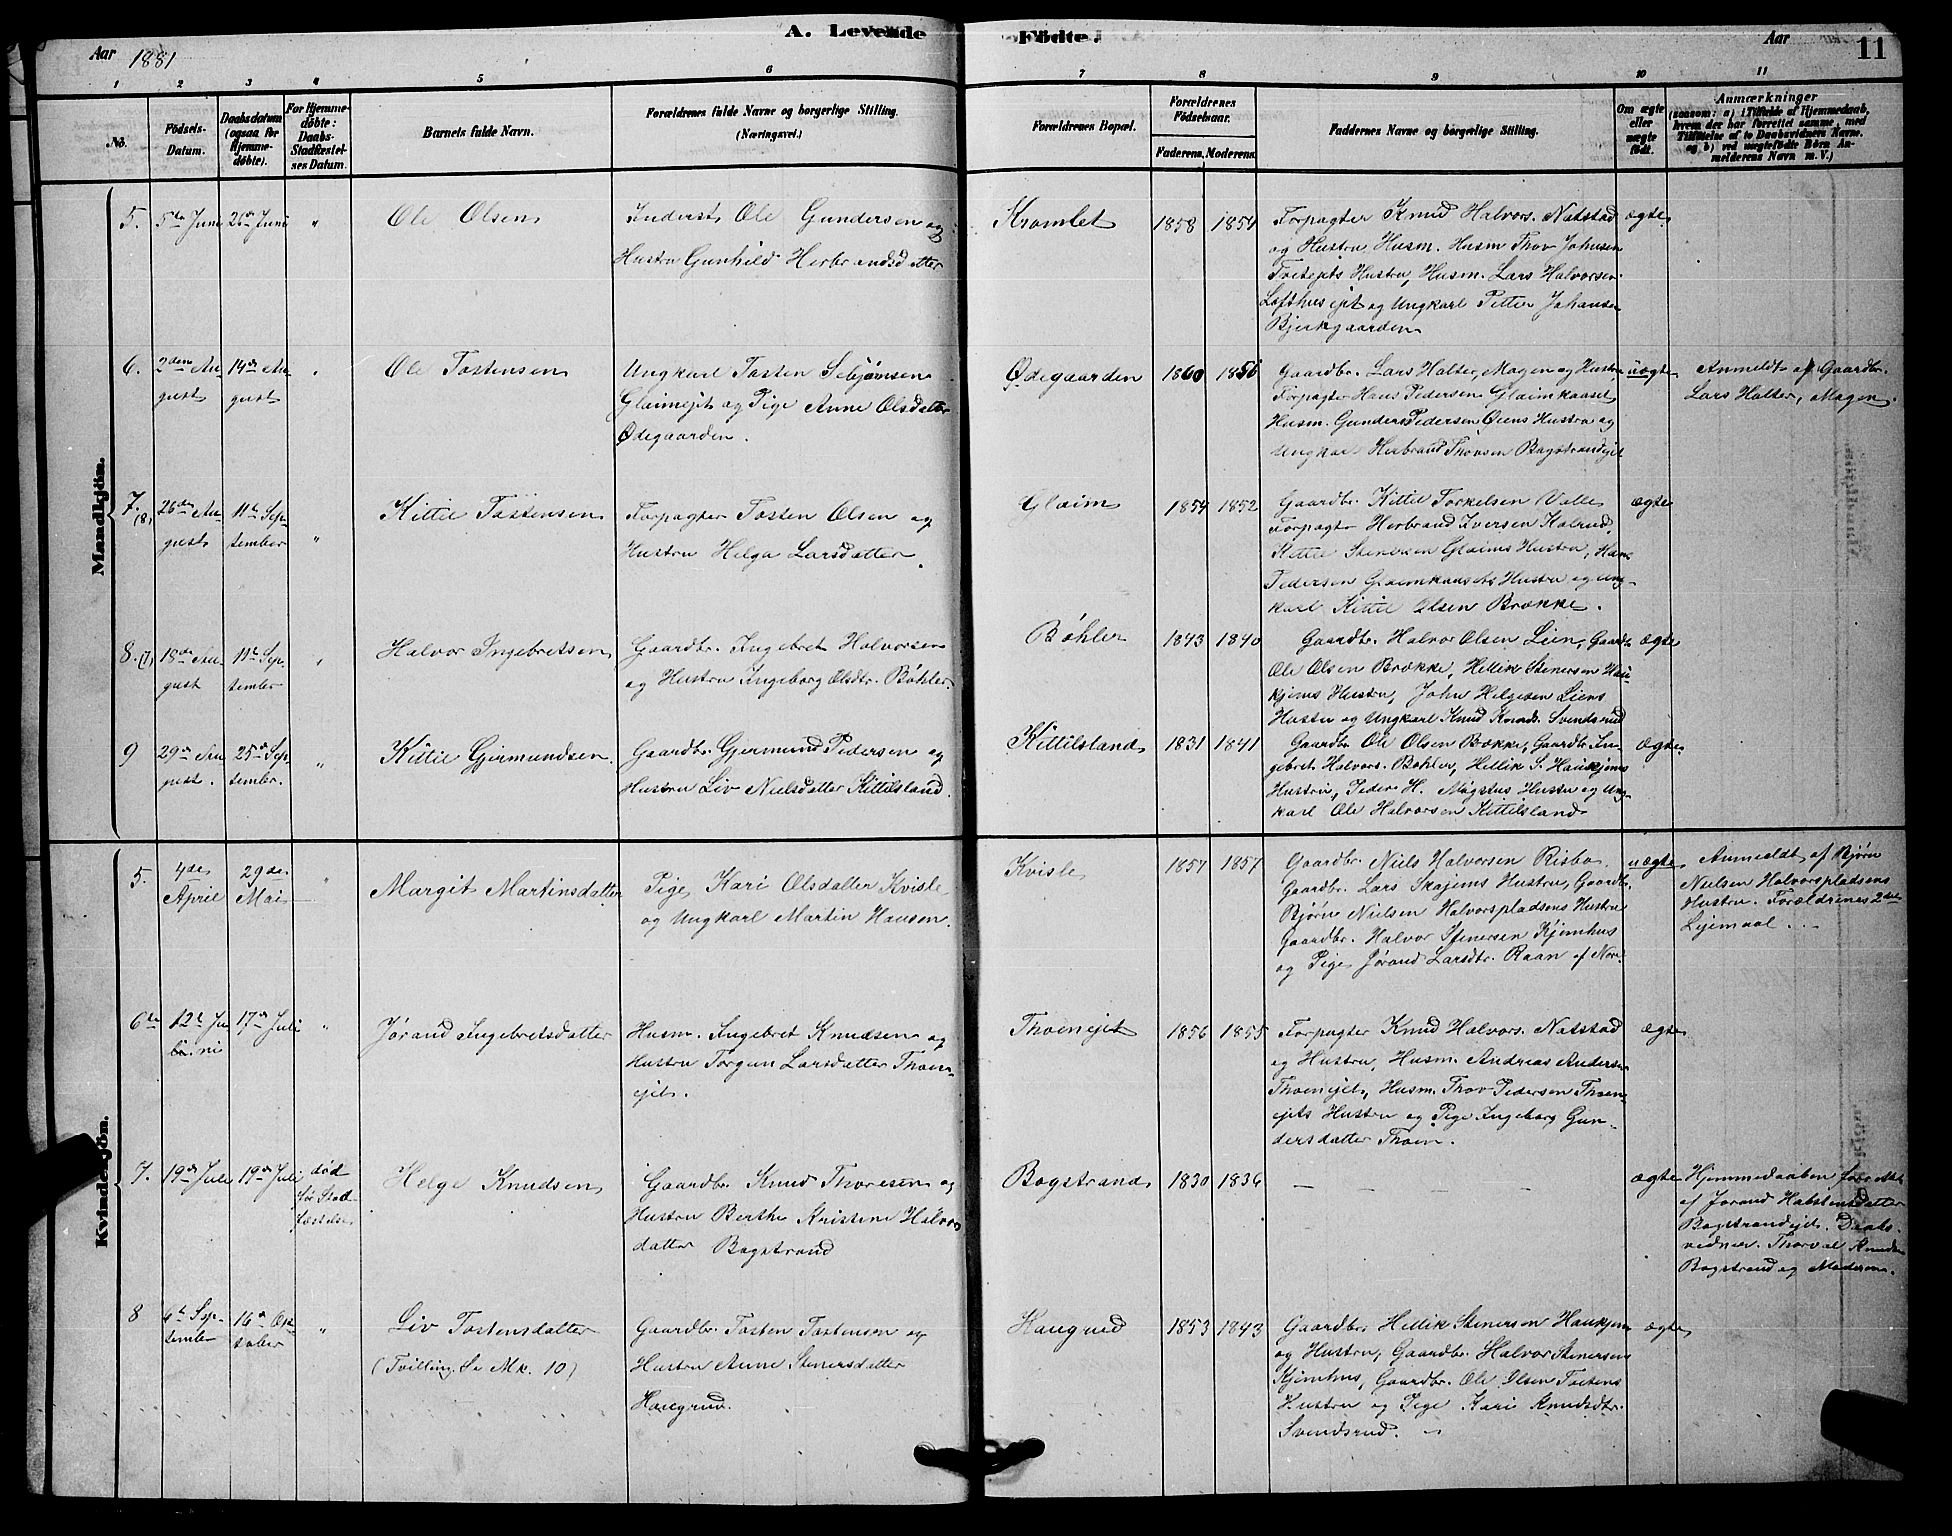 A. Levende Födte.
Aar 1881
Aar
11
1 2 3 4 5 6 7 8 9 10 11
No.
Födsels-
Datum.
Daabsdatum
(ogsaa for
Hjemme-
döbte).
For Hjemme-
döbte:
Daabs-
Stadfæstel-
ses Datum.
Barnets fulde Navn.
Forældrenes fulde Navne og borgerlige Stilling.
(Næringsvei.)
Forældrenes Bopæl.
Forældrenes
Födselsaar.
Faderens. Moderens.
Faddernes Navne og borgerlige Stilling.
Om ægte
eller
uægte
födt.
Anmærkninger
(saasom: a) i Tilfælde af Hjemmedaab,
hvem der har forrettet samme, med
Tilföielse af to Daabsvidners Navne.
og b) ved uægtefödte Börn An-
melderens Navn m. V.)
Mandkjön.
5. 5te Juni 26de Juni "
Ole Olsen
Inderst Ole Gundersen og
Hustru Gunhild Herbrandsdatter
Kromlet
1858 1854
Forpagter Knud Halvors. Natstad
og Hustru Husm. Husm Thov Johnsen
Hustru, Husm. Lars Halvorsen
Lofthusejet og Ungkarl Petter Johansen
Bjerkgaarden
ægte
6. 2den Au-
gust
14de Au-
gust
"
Ole Tostensen
Ungkarl Tosten Sebjørnsen
Glaimejet og Pige Anne Olsdatter
Ødegaarden.
Ødegaarden
1860 1856
Gaardbr. Lars Halter, Mogen og Hustru
Forpagter Hans Pedersen Glaimkaaset
Husm. Gunder Pedersen Øiens Hustru og
Ungkarl Herbrand Thovsen Bagstrandejet
uægte
Anmeldt af Gaardbr.
Lars Halter, Mogen.
7. (8) 26de Au-
gust
11te Sep-
tember
"
Kittil Tostensen
Forpagter Tosten Olsen og
Hustru Helga Larsdatter.
Glaim
1854 1852
Gaardbr. Kittil Torkelsen Valle
Forpagter Herbrand Iversen Kolrud,
Kittil Stenersen Glaims Hustru, Hans
Pedersen Glaimkaasets Hustru og Ung-
karl Kittil Olsen Brække.
ægte
8. (7) 18de Au-
gust
11te Sep-
tember
"
Halvor Ingebretsen
Gaardbr. Ingebret Halvorsen
og Hustru Ingeborg Olsdtr. Bøhler.
Bøhler
1843 1840
Gaardbr. Halvor Olsen Lien, Gaardb.
Ole Olsen Brække, Hellik Stenersen Hau-
kjems Hustru, John Helgesen Liens
Hustru og Ungkarl Knud Knuds. Svendsrud
ægte
9 29de Au-
gust.
25de Sep-
tember.
"
Kittil Gjermundsen
Gaardbr. Gjermund Pedersen og
Hustru Liv Nielsdatter Kittilsland.
Kittilsland
1831 1841
Gaardbr. Ole Olsen Bække, Gaardbr. In-
gebret Halvors. Bøhler, Hellik S. Haukjems
Hustru, Peder H. Mogstus Hustru og Ung-
karl Ole Halvorsen Kittilsland
ægte
Kvindekjön.
5. 4de
April
29de
Mai
"
Margit Martinsdatter
Pige Kari Olsdatter Kvisle
og Ungkarl Martin Hansen.
Kvisle
1857 1857
Gaardbr. Niels Halvorsen Risbo,
Gaardbr. Lars Skajems Hustru, Gaardb.
Bjørn Nielsen Halvorspladsens Hustru
Gaardbr. Halvor Stenersen Kjemhus
og Pige Jørand Larsdtr. Raan af Nore
uægte
Anmeldt af Bjørn
Nielsen Halvorspladsens
Hustru. Forældrenes 2det
Lejemaal.
6te 12te Ju
ni
17de Juli
"
Jørand Ingebretsdatter
Husm. Ingebret Knudsen og
Hustru Torgun Larsdatter Thoen-
ejet.
Thoenejet
1856 1855
Forpagter Knud Halvors. Natstad
og Hustru, Husm. Andreas Andersen
Thoenejet, Husm. Thov Pedersen Thoen-
ejets Hustru og Pige Ingeborg Gun-
dersdatter Thoen.
ægte
7. 19de Juli 19de Juli
død
før Stad-
fæstelse
Helge Knudsen
Gaardbr. Knud Thoresen og
Hustru Berthe Kristine Halvors
datter Bagstrand
Bagstrand
1830 1836
ægte
Hjemmedaaben forrettet
af Jorand Halstensdatter
Bagstrandejet. Daabs-
vidner. Thorval Knudsen
Bagstrand og Moderen.
8 4de Sep-
tember
16de Ok-
tober
"
Liv Tostensdatter
(Tvilling, Se Mk. 10)
Gaardbr. Tosten Tostensen og
Hustru Anne Stenersdatter
Haugrud.
Haugrud
1853 1843
Gaardbr. Hellik Stenersen Haukjem
og Hustru, Gaardbr. Halvor Stenersen
Kjemhus, Gaardbr. Ole Olsen Toetens
Hustru og Pige Kari Knudsdtr.
Svendsrud.
ægte